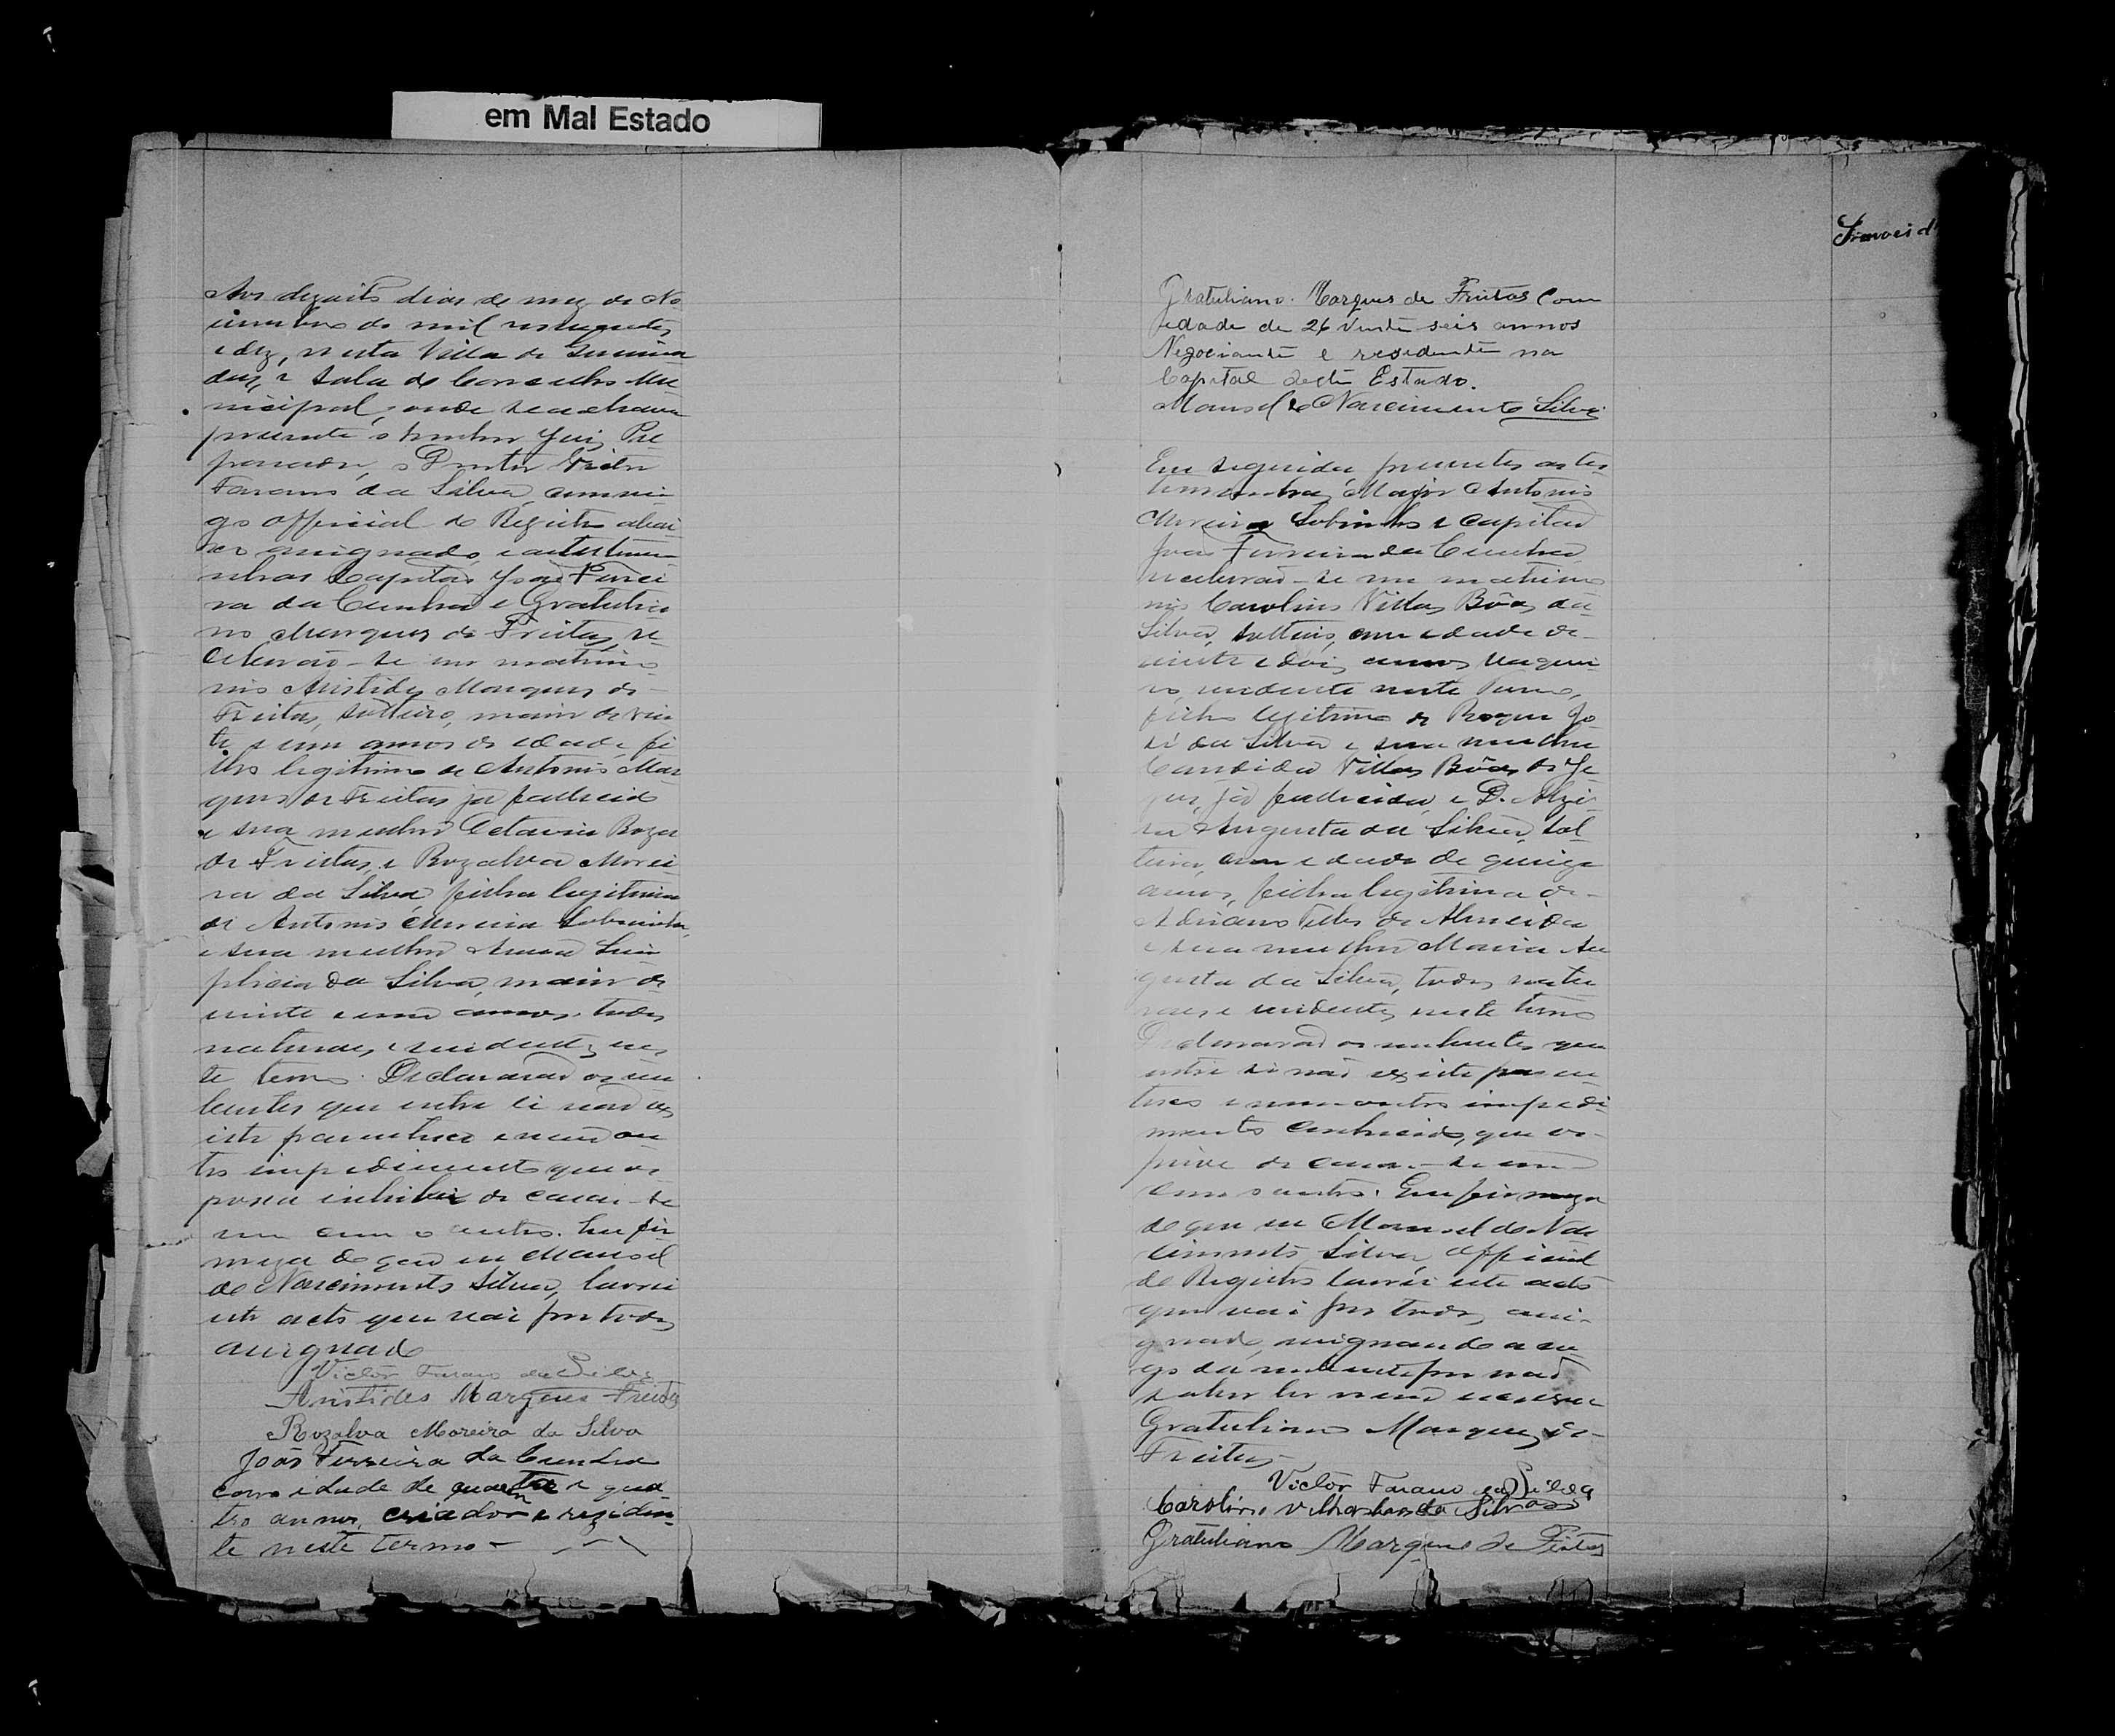 em Mal Estado
Aos dezoito dias do mez de No
vembro de mil novecentos
e dez, nesta Villa de
e Sala do Conselho Mu
nicipal, onde se achava
presente o Senhor Juiz Pre
parador, o Doutor Victor
da Silva, commi
go official do Registro abai
xo assignado, e as testemu
nhas Capitão João Ferrei
ra da Cunha e Gratulia
no Marques de Freitas, re
ceberão-se em matrimo
nio Aristides Marques de
Freitas, solteiro, maior de vin
te e um annos de edade, fi
lho legitimo de Antonio Mar
ques de Freitas já fallecido
e sua mulher Octavia Roza
de Freitas, e Rozalva Morei
ra da Silva filha legitima
de Antonio Moreira Sobrinho,
e sua mulher Anna Sim
plicia da Silva, maior de
vinte e um annos, todos
naturaes e residentes nes
te termo. Declararão os nu
bentes que entre si não ex
iste parentesco e nem ou
tro impedimento que os
possa inhibir de casar-se
um com o outro. Em fir
meza do que eu Manoel
do Nascimento Silva, lavrei
este acto que vai por todos
assignado
Victor da Silva
Aristides Marques Freitas
Rozalva Moreira da Silva
João Ferreira da Cunha
com idade de quarenta e qua
tro annos, criador e residen
te neste termo -
Gratuliano Marques de Freitas Com
edade de 26 vinte seis annos
Negociante e residente na
Capital deste Estado.
Manoel do Nascimento Silva
Em seguida presentes as tes
temunhas, Major Antonio
Moreira Sobrinho e Capitão
João Ferreira da Cunha
receberão-se em matrimo
nio Carolino Villas Bôas da
Silva, solteiro, com edade de
vinte e dois annos vaquei
ro, residente neste termo,
filho legitimo de Roque Jo
sé da Silva e sua mulher
Candida Villas Bôas de Je
sus, já fallecida, e D. Alzi
ra Augusta da Silva, sol
teira, com edade de quinze
annos, filha legitima de
Adriano Telles de Almeida
e sua mulher Maria Au
gusta da Silva, todos natu
raes e residentes neste termo
Declararão os nubentes que
entre si não existe paren
tesco e nem outro impedi
mento conhecido, que os
prive de casar-se um
com o outro. Em firmeza
do que eu Manoel do Nas
cimento Silva, official
do Registro lavrei este acto
que vai por todos assi-
gnado, assignando a ro
go da nubente por não
saber ler nem escrever
Gratuliano Marques de
Freitas
Victor da Silva
Carolino Villas boas da Silva
Gratuliano Marques de Freitas